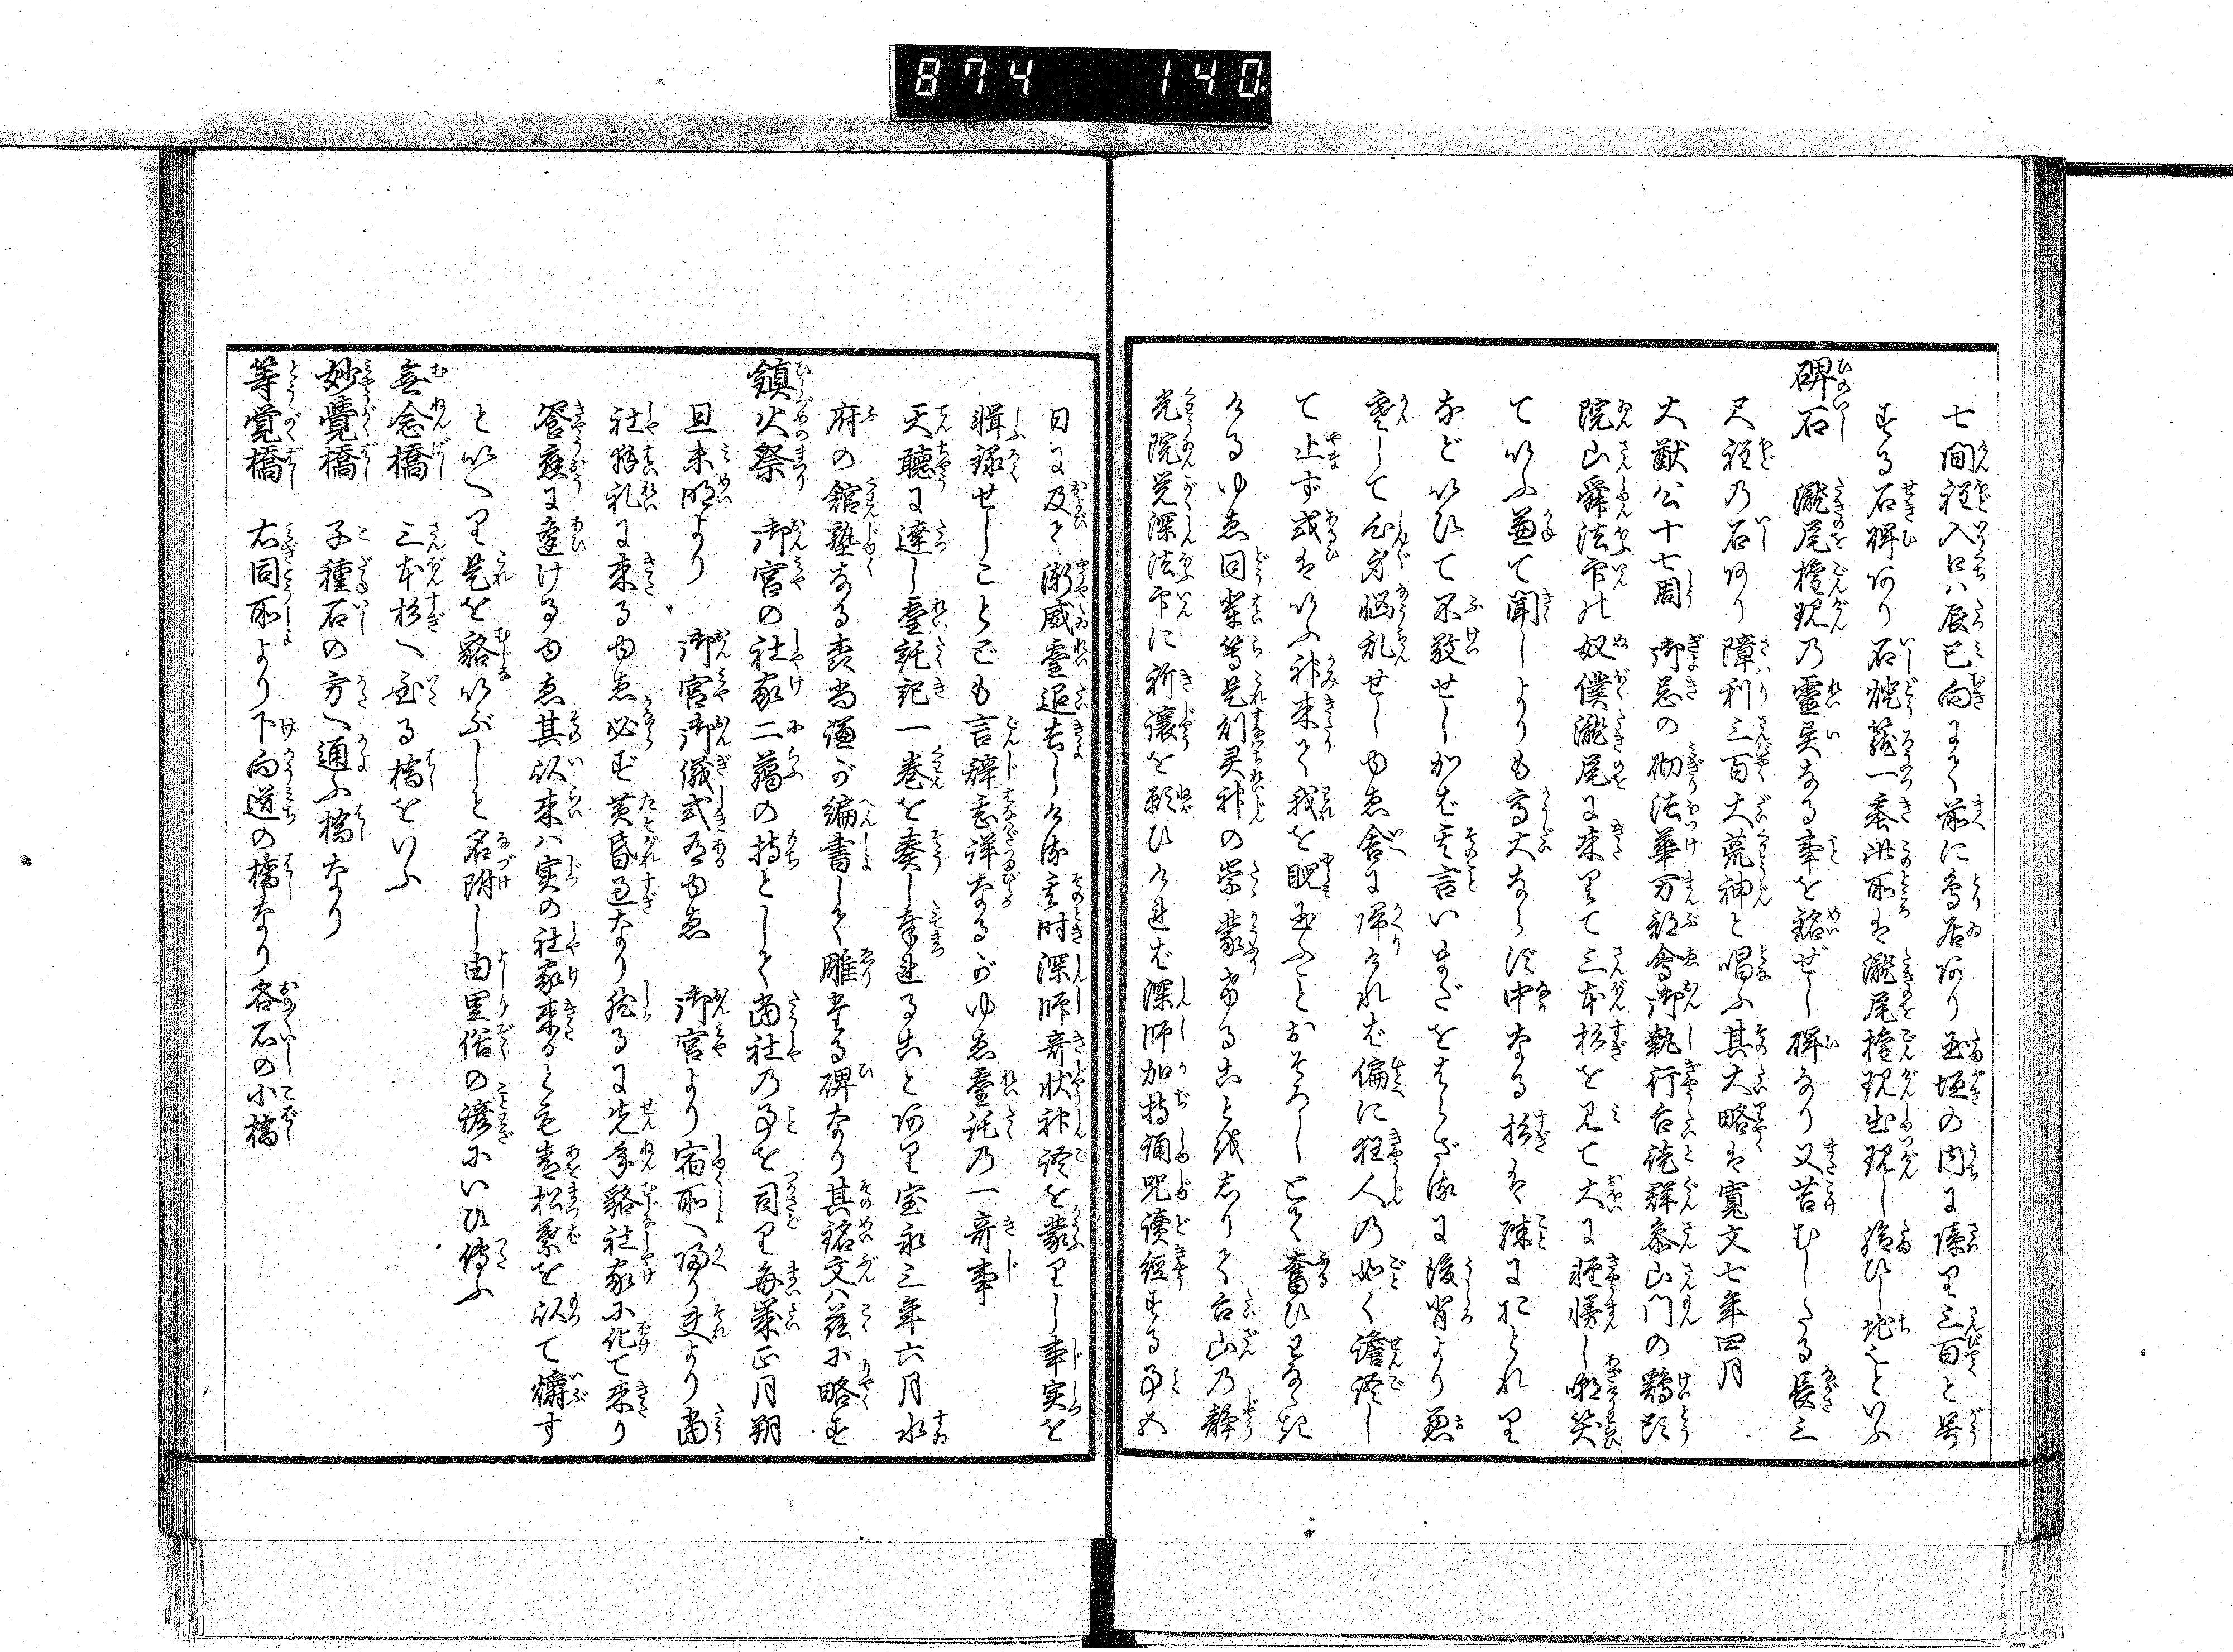 874 140
七間程入口ハ辰巳向にて前に鳥居あり玉垣の内に陳り三百と号
する石碑あり石燈籠一基此所は瀧尾権現出現し給ひし地といふ
碑石 瀧尾権現の霊異なる事を銘ぜし碑なり又苔むしたる長三
尺程の石あり障利三百大荒神と唱ふ其大略は寛文七年四月
大猷公十七周御忌の砌法華万部会御執行台徒群参山門の鶏頭
院山舜法印の奴僕瀧尾に来りて三本杉を見て大に軽慢し嘲笑
ていふ兼て聞しよりも高大ならず中なる杉は殊におとれり
などいひて不敬せしかば其言いまだをはらざるに後背より
して心身悩乱せしゆゑ舎に帰りければ偏に狂人の如く譫語し
て止ず或はいふ神来りて我を睨玉ふことおそろしとて奮ひわなゝき
けるゆゑ同輩等是則霊神の祟蒙れることをしりて台山の静
光院覚深法印に祈禳を願ひければ深師加持誦呪読経する事五
日に及びて漸威霊退去しける其時深師奇状神語を蒙りし事実を
輯録せしことども言辞悉詳なるがゆゑ霊託の一奇事
天聴に達し霊託記一巻を奏し奉れること有り宝永三年六月水
府の館塾なる森尚謙が編書して雕たる碑なり其銘文ハ茲に略す
鎮火祭 御宮の社家二﨟の持として当社の事を司り毎歳正月朔
旦未明より 御宮御儀式有ゆゑ 御宮より宿所へ帰り夫より当
社拝礼に来るゆゑ必ず黄昏過なり然るに先年貉社家に化て来り
饗応に逢けるゆゑ其以来ハ実の社家来るとも青松葉を以て燻す
といへり是を貉いぶしと名附し由里俗の諺にいひ傳ふ
無念橋 三本杉へ至る橋をいふ
妙覺橋 子種石の方へ通ふ橋なり
等覚橋 右同所より下向道の橋なり各石の小橋